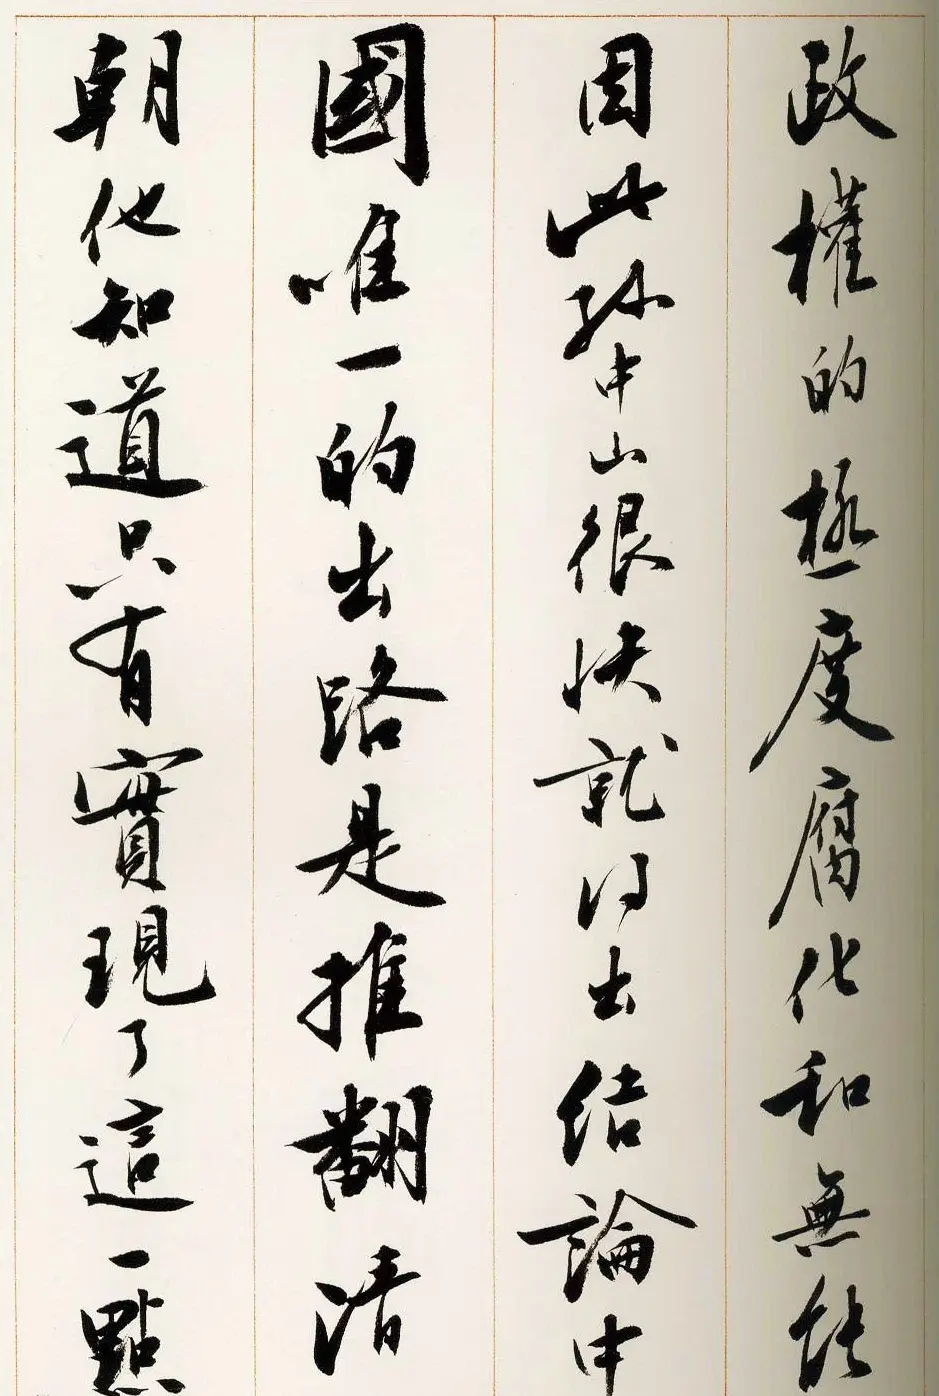 政權的極度腐化和無能
因此孫中山很快就得出結論中
國唯一的出路是推翻清
朝他知道只有實現了這一點